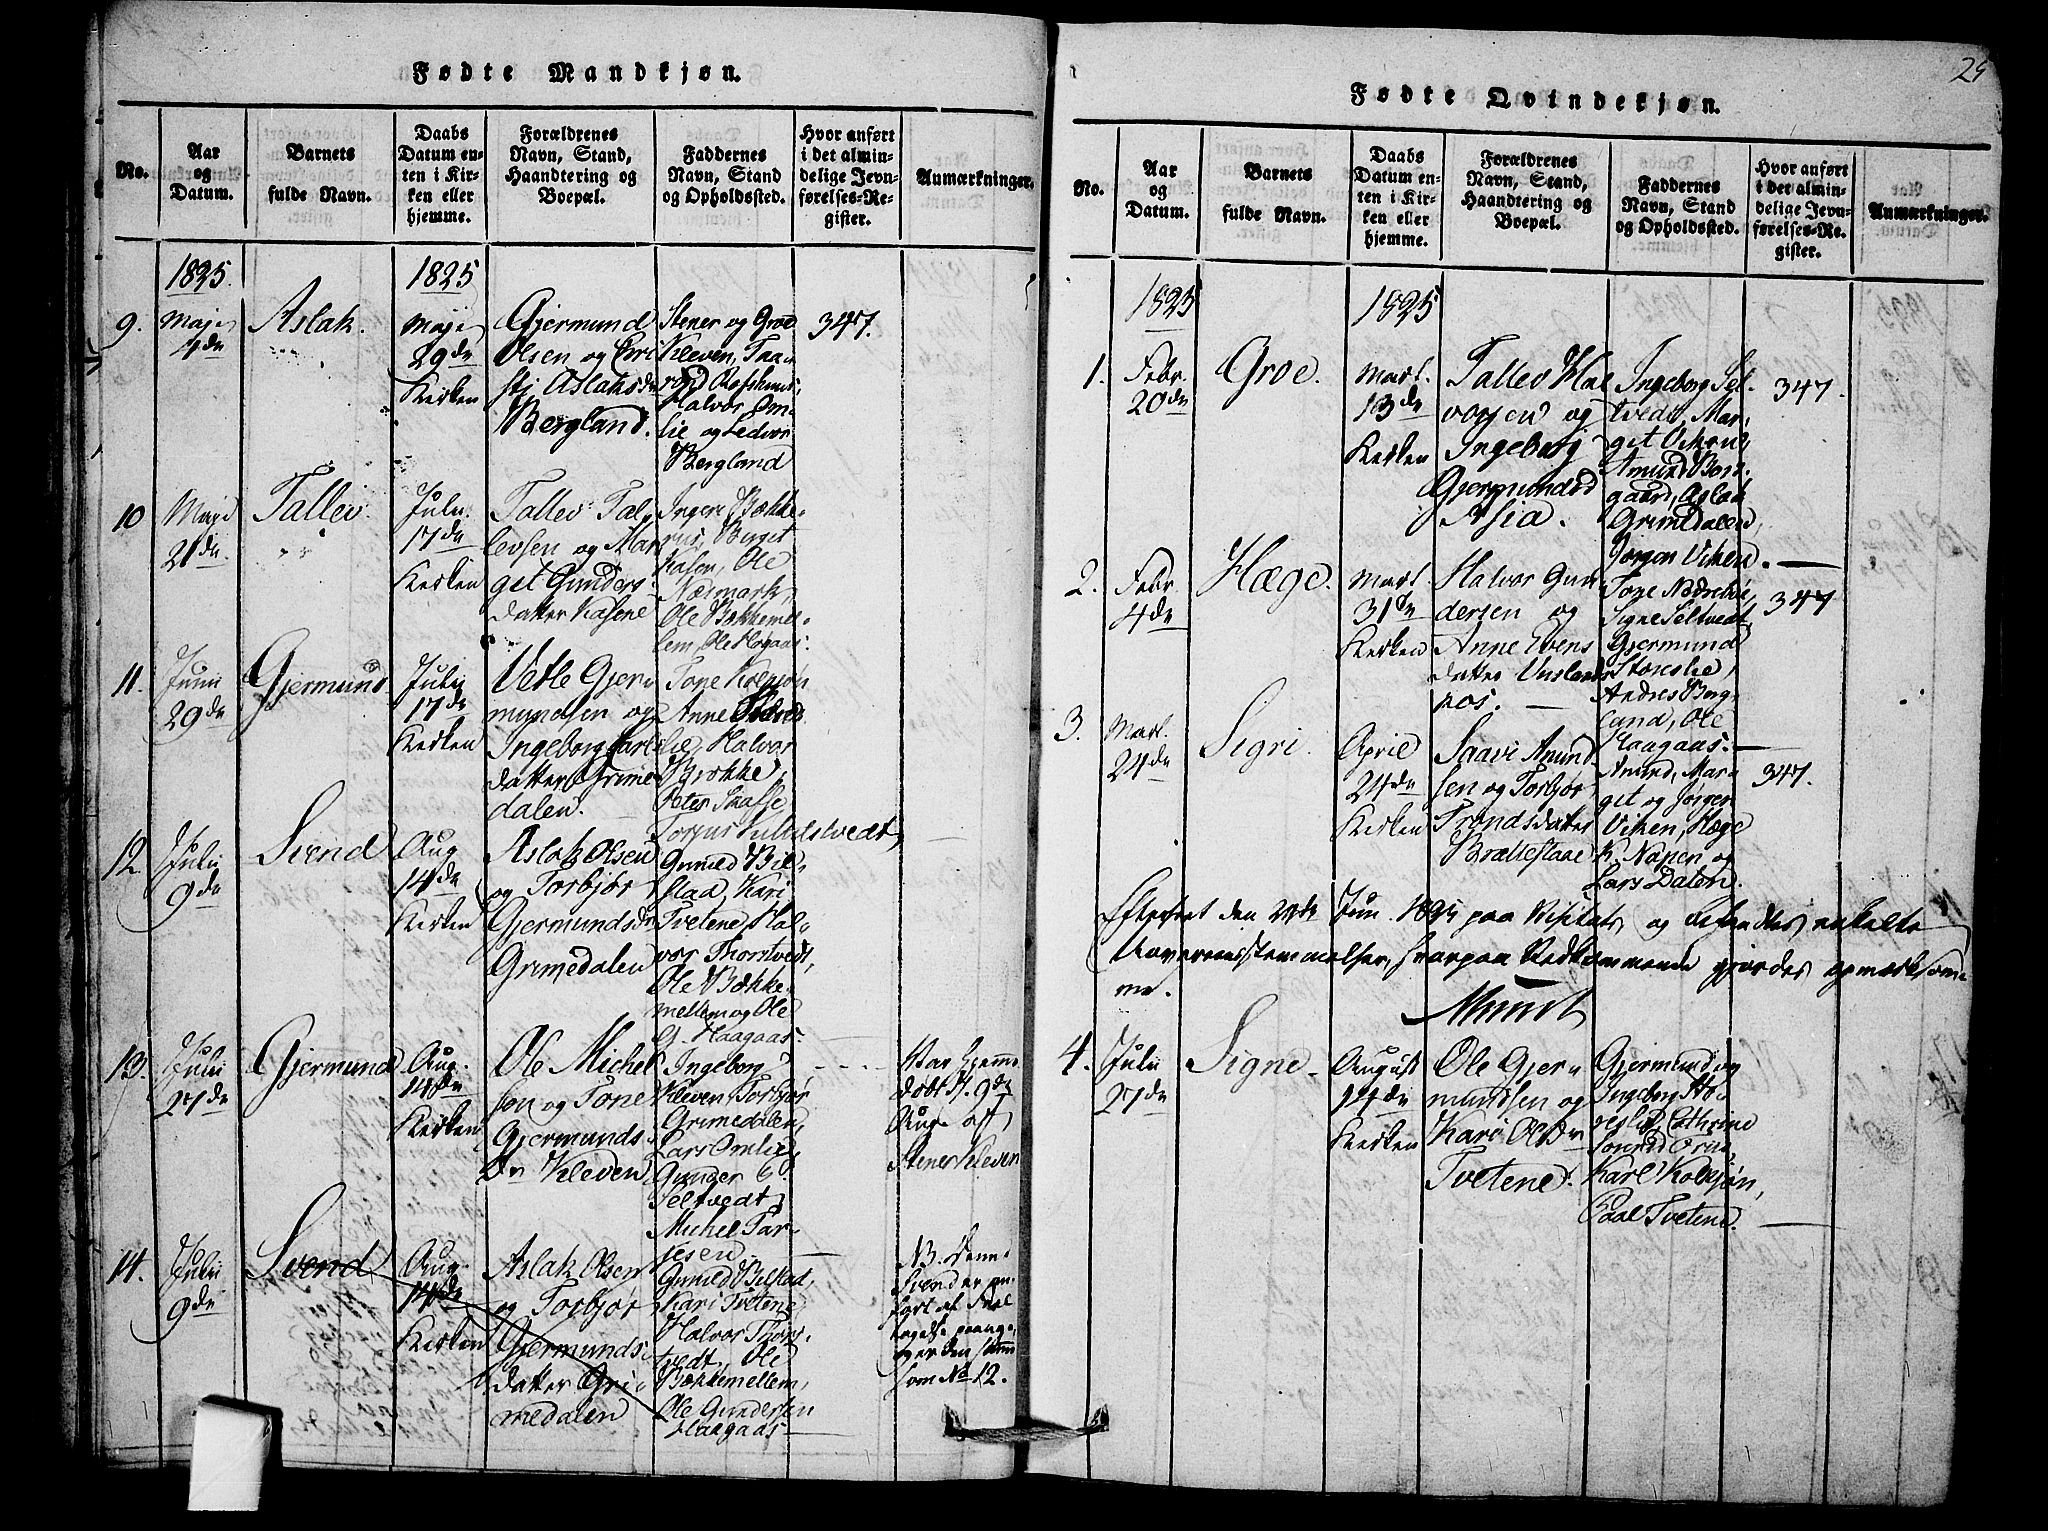 Fødte Mandkjøn.
No.
Aar
og
Datum.
Barnets
fulde Navn.
Daabs
Datum en-
ten i Kir-
ken eller
hjemme.
Forældrenes
Navn, Stand,
Haandtering og
Boepæl.
Faddernes
Navn, Stand
og Opholdssted.
Hvor anført
i det almin-
delige Jevn-
førelses-Re-
gister.
Anmærkninger.
1825.
1825
9.
Maji
4de
Aslak.
Maji
29de
Kirken
Gjermund
Olsen og
Aslaksdr
Bergland.
Stener og Groe
Kleven,
Halvor Om-
lie og
Bergland
347.
10
Maji
21de
Tallev.
Juli
17de
Kirken
Tallev Tal-
levsen og Mar
git Gunders
datter Kasene
Ole
Næsmark,
Ole Bækkemel-
lem, Ole Hogaas.
11.
Juni
29de
Gjermund
Juli
17de
Kirken
Vetle Gjer
mundsen og
Ingeborg
datter Grime
dalen.
Tone
Anne
lie, Halvor
Bække,
Peter
12.
Juli
9de
Svend
Aug
14de
Kirken
Aslak Olsen
og Torbjør
Gjermundsdr
Grimedalen
Gunuld Bil-
stad, Kari
Tvetene, Hal-
vor Thorstvedt,
Ole Bække-
mellem og Ole
G. Haagaas.
13.
Juli
27de
Gjermund
Aug.
14de
Kirken
Ole Michel
sen og Tone
Gjermunds
Dr Kleven
Ingeborg
Kleven, Torbjør
Grimedalen,
Lars Omlie,
Gunder
Seltvedt,
Michel Tar-
jesen
Var hjemme
døbt d. 9de
Aug. af
Stener Kleven
14.
Juli
9de
Svend
Aug.
14de
Kirken
Aslak Olsen
og Torbjør
Gjermunds
datter Gri
medalen
Gunuld Bilstad,
Kari Tvetene,
Halvor Thors-
tvedt, Ole
Bækkemellem,
Ole Gundersen
Haagaas
NB. Denne
Svend er an-
ført af
og er den samme
som No 12.
25
Fødte Qvindekjøn.
No.
Aar
og
Datum.
Barnets
fulde Navn.
Daabs
Datum en-
ten i Kir-
ken eller
hjemme.
Forældrenes
Navn, Stand,
Haandtering og
Boepæl.
Faddernes
Navn, Stand
og Opholdssted.
Hvor anført
i det almin-
delige Jevn-
førelses-Re-
gister.
Anmærkninger.
1825
1825
1.
Febr.
20de
Groe.
Mart.
13de
Kirken
Tallev Hal
vorsen og
Ingeborg
Gjermundsd
Asia.
Ingeborg Sel-
tvedt, Mar-
git Viken,
Amund
Grimedalen,
Jørgen Viken.
347.
2.
Febr.
4de
Hæge.
Mart.
31te
Kirken
Halvor Gun
dersen og
Anne Evens
datter
Tone
Signe Seltvedt,
Gjermund
Andres Berg-
land, Ole
Haagaas.
347
3.
Mart.
24de
Sigri.
April
24de
Kirken
Saavi Amund
sen og Torbjør
Trondsdatter
Brættestaae
Amund, Mar-
git og Jørgen
Viken, Hæge
K. Napen og
Lars Dalen.
347.
Efterseet den Juni 1825 paa Visitats og befandtes enkelte
Uovereensstemmelser, hvorpaa Vedkommende gjordes opmærksom-
me.
Munch
4.
Juli
27de
Signe.
August
14de
Kirken
Ole Gjer
mundsen og
Kari Olsdr
Tvetene.
Gjermund og
Ingeborg
Cathrine
Karl Kolsjøn,
Paal Tvetene.